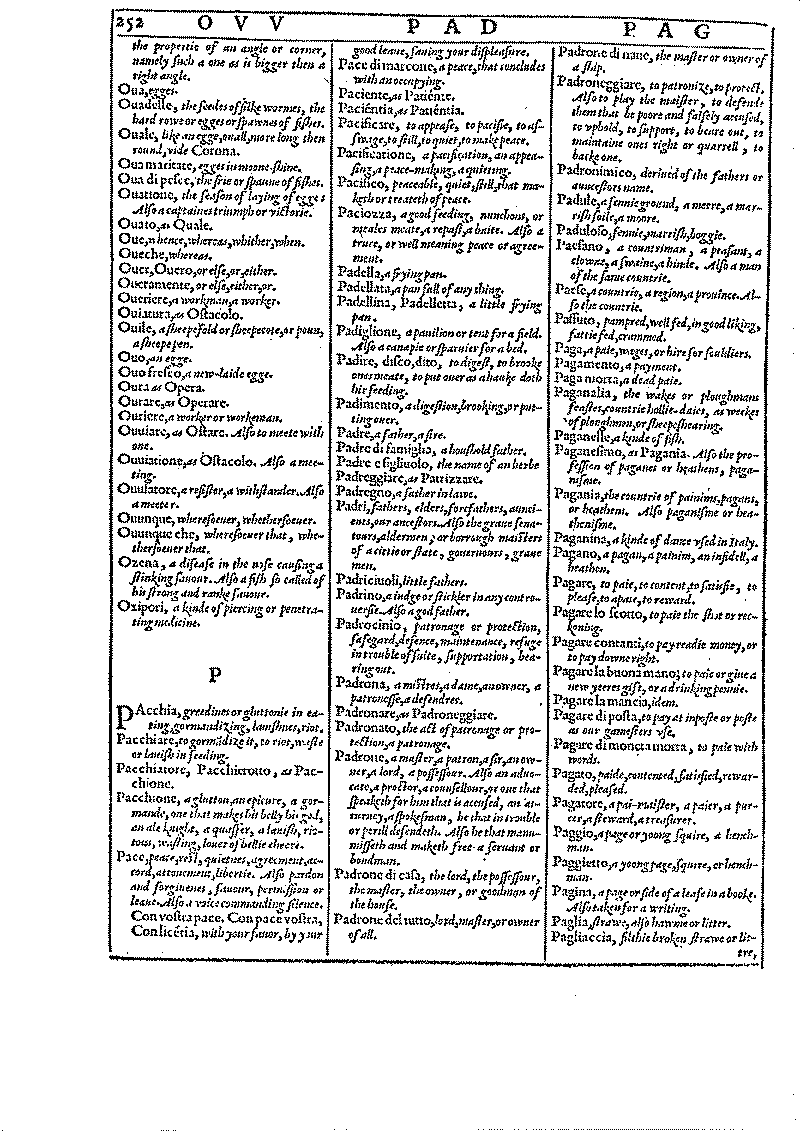 252 O V V P A D P A G
the propertie of an angle or corner,
namely such a one as is bigger then a
right angle.
Oua, egges.
Ouadelle, the seedes of silke wormes, the
hard rowe or egges or spawnes of fishes.
Ouale, like an egge, ouall, more long then
round, vide Corona.
Oua maritate, egges in moone-shine.
Oua di pesce, the frie or spaune of fishes.
Ouatione, the season of laying of egges
Also a captaines triumph or victorie.
Ouato, as Quale.
Oue, whence, whereas, whither, when.
Oueche, whereas.
Ouer, Ouero, or else, or, either.
Oueramente, or else, either, or.
Oueriere, a workman, a worker.
Ouiatura, as Ostacolo.
Ouile, a sheepefold or sheepecote, or poun,
a sheepe pen.
Ouo, an egge.
Ouo fresco, a new-laide egge.
Oura as Opera.
Ourare, as Operare.
Ouriere, a worker or workeman.
Ouuiare, as Ostare. Also to meete with
one.
Ouuiatione, as Ostacolo. Also a mee-
ting.
Ouuiatore, a resistor, a withstander. Also
a meeter.
Ouunque, wheresoeuer, whethersoeuer.
Ouunque che, wheresoeuer that, whe-
thersoeuer that.
Ozena, a disease in the nose causing a
stinking sauour. Also a fish so called of
his strong and ranke sauour.
Ozipori, a kinde of piercing or penetra-
ting medicine.
P
PAcchia, greedines or gluttonie in ea-
ting, gormandizing, lauishnes, riot.
Pacchiare, to gormãdize it, to riot, waste
or lauish in feeding.
Pacchiatore, Pacchierotto, as Pac-
chione.
Pacchione, a glutton, an epicure, a gor-
mande, one that makes his belly his god,
an ale knight, a quaffer, a lauish, rio-
tous, wasting, louer of bellie cheere.
Pace, peace, rest, quietnes, agreement, ac-
cord, attonement, libertie. Also pardon
and forgiuenes, fauour, permission or
leaue. Also a voice commanding silence.
Con vostra pace. Con pace vostra,
Con licẽtia, with your fauor, by your
good leaue, sauing your displeasure.
Pace di marcone, a peace, that concludes
with an occupying.
Paciente, as Patiẽnte.
Paciẽntia, as Patiẽntia.
Pacificare, to appease, to pacifie, to as-
swage, to still, to quiet, to make peace.
Pacificatione, a pacification, an appea-
sing, a peace-making, a quieting.
Pacifico, peaceable, quiet, still, that ma-
keth or treateth of peace.
Paciozza, a good feeding, nunchons, or
meales meate, a repast, a baite. Also a
truce, or well meaning peace or agree-
ment.
Padella, a frying pan.
Padellata, a pan full of any thing.
Padellina, Padelletta, a little frying
pan.
Padiglione, a pauilion or tent for a field.
Also a canapie or sparuier for a bed.
Padire, disco, dito, to digest, to brooke
ones meate, to put ouer as a hauke doth
hir feeding.
Padimento, a digestion, brooking, or put-
ting ouer.
Padre, a father, a sire.
Padre di famiglia, a houshold father.
Padre e figliuolo, the name of an herbe
Padreggiare, as Patrizzare.
Padregno, a father in lawe.
Padri, fathers, elders, forefathers, aunci-
ents, our ancestors. Also the graue sena-
tours, aldermen, or borough maisters
of a citie or state, gouernours, graue
men.
Padriciuoli, little fathers.
Padrino, a iudge or stickler in any contro-
uersie. Also a god father.
Padrocinio, patronage or protection,
safegard, defence, maintenance, refuge
in trouble of suite, supportation, bea-
ring out.
Padrona, a mistres, a dame, an owner, a
patronesse, a defendres.
Padronare, as Padroneggiare.
Padronato, the act of patronage or pro-
tection, a patronage.
Padrone, a master, a patron, a sir, an ow-
ner, a lord, a possessour. Also an aduo-
cate, a proctor, a counsellour, or one that
speaketh for him that is accused, an at-
turney, a spokesman, he that in trouble
or perill defendeth. Also he that manu-
misseth and maketh free a seruant or
bondman.
Padrone di casa, the lord, the possessour,
the master, the owner, or goodman of
the house.
Padrone del tutto, lord, master, or owner
of all.
Padrone di naue, the master or owner of
a ship.
Padroneggiare, to patronize, to protect.
Also to play the maister, to defende
them that be poore and falsely accused,
to vphold, to support, to beare out, to
maintaine ones right or quarrell, to
backe one.
Padronimico, deriued of the fathers or
auncestors name.
Padule, a fennie ground, a meere, a mar-
rish soile, a moore.
Paduloso, fennie, marrish, boggie.
Paesano, a countriman, a peasant, a
clowne, a swaine, a hinde. Also a man
of the same countrie.
Paese, a countrie, a region, a prouince. Al-
so the countrie.
Paffuto, pampred, well fed, in good liking,
fattie fed, crammed.
Paga, a paie, wages, or hire for souldiers.
Pagamento, a payment.
Paga morta, a dead paie.
Paganalia, the wakes or ploughmans
feastes, countrie hollie-daies, as weekes
of ploughmen, or sheepeshearing.
Paganelle, a kinde of fish.
Paganesimo, as Pagania. Also the pro-
fession of paganes or heathens, paga-
nisme.
Pagania, the countrie of painims, pagans,
or heathens. Also paganisme or hea-
thenisme.
Paganina, a kinde of dance vsed in Italy.
Pagano, a pagan, a painim, an infidell, a
heathen.
Pagare, to paie, to content, to satisfie, to
please, to apaie, to reward.
Pagare lo scotto, to paie the shot or rec-
koning.
Pagare contanti, to pay readie money, or
to pay downe right.
Pagare la buona mano, to paie or giue a
new yeeres gift, or a drinking pennie.
Pagare la mancia, idem.
Pagare di posta, to pay at inposte or poste
as our gamesters vse.
Pagare di moneta morta, to paie with
words.
Pagato, paide, contented, satisfied, rewar-
ded, pleased.
Pagatore, a pai-maister, a paier, a pur-
cer, a steward, a treasurer.
Paggio, a page or yoong squire, a hench-
man.
Paggietto, a yoong page, squire, or hench-
man.
Pagina, a page or side of a leafe in a booke.
Also taken for a writing.
Paglia, strawe, also hawme or litter.
Pagliaccia, filthie broken strawe or lit-
tre,